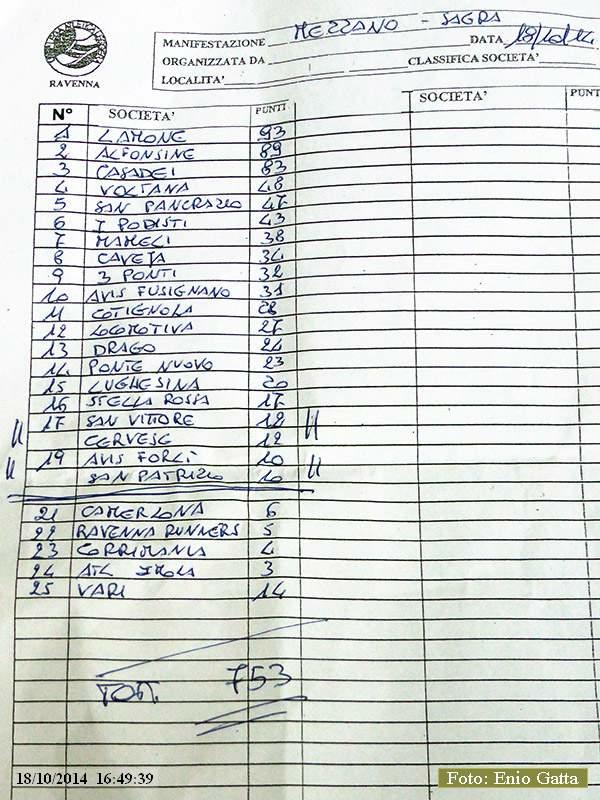 RAVENNA
MANIFESTAZIONE MEZZANO - SAGRA DATA 18/10/14
ORGANIZZATA DA CLASSIFICA SOCIETA'
LOCALITA'
N° SOCIETA' PUNTI SOCIETA' PUNT
1 LAMONE 93
2 ALFONSINE 89
3 CASADEI 83
4 VOLTANA 48
5 SAN PANCRAZIO 47
6 I PODISTI 43
7 MAMELI 38
8 CAVEJA 34
9 3 PONTI 32
10 AVIS FUSIGNANO 31
11 COTIGNOLA 28
12 LOCOMOTIVA 27
13 DRAGO 24
14 PONTE NUOVO 23
15 LUGHESINA 20
16 STELLA ROSSA 17
17 SAN VITTORE 12
CERVESE 12
19 AVIS FORLÌ 10
SAN PATRIZIO 10
21 CAMERLONA 6
22 RAVENNA RUNNERS 5
23 CORRIMANIA 4
24 ATL IMOLA 3
25 VARI 14
TOT. 753
18/10/2014 16:49:39
Foto: Enio Gatta